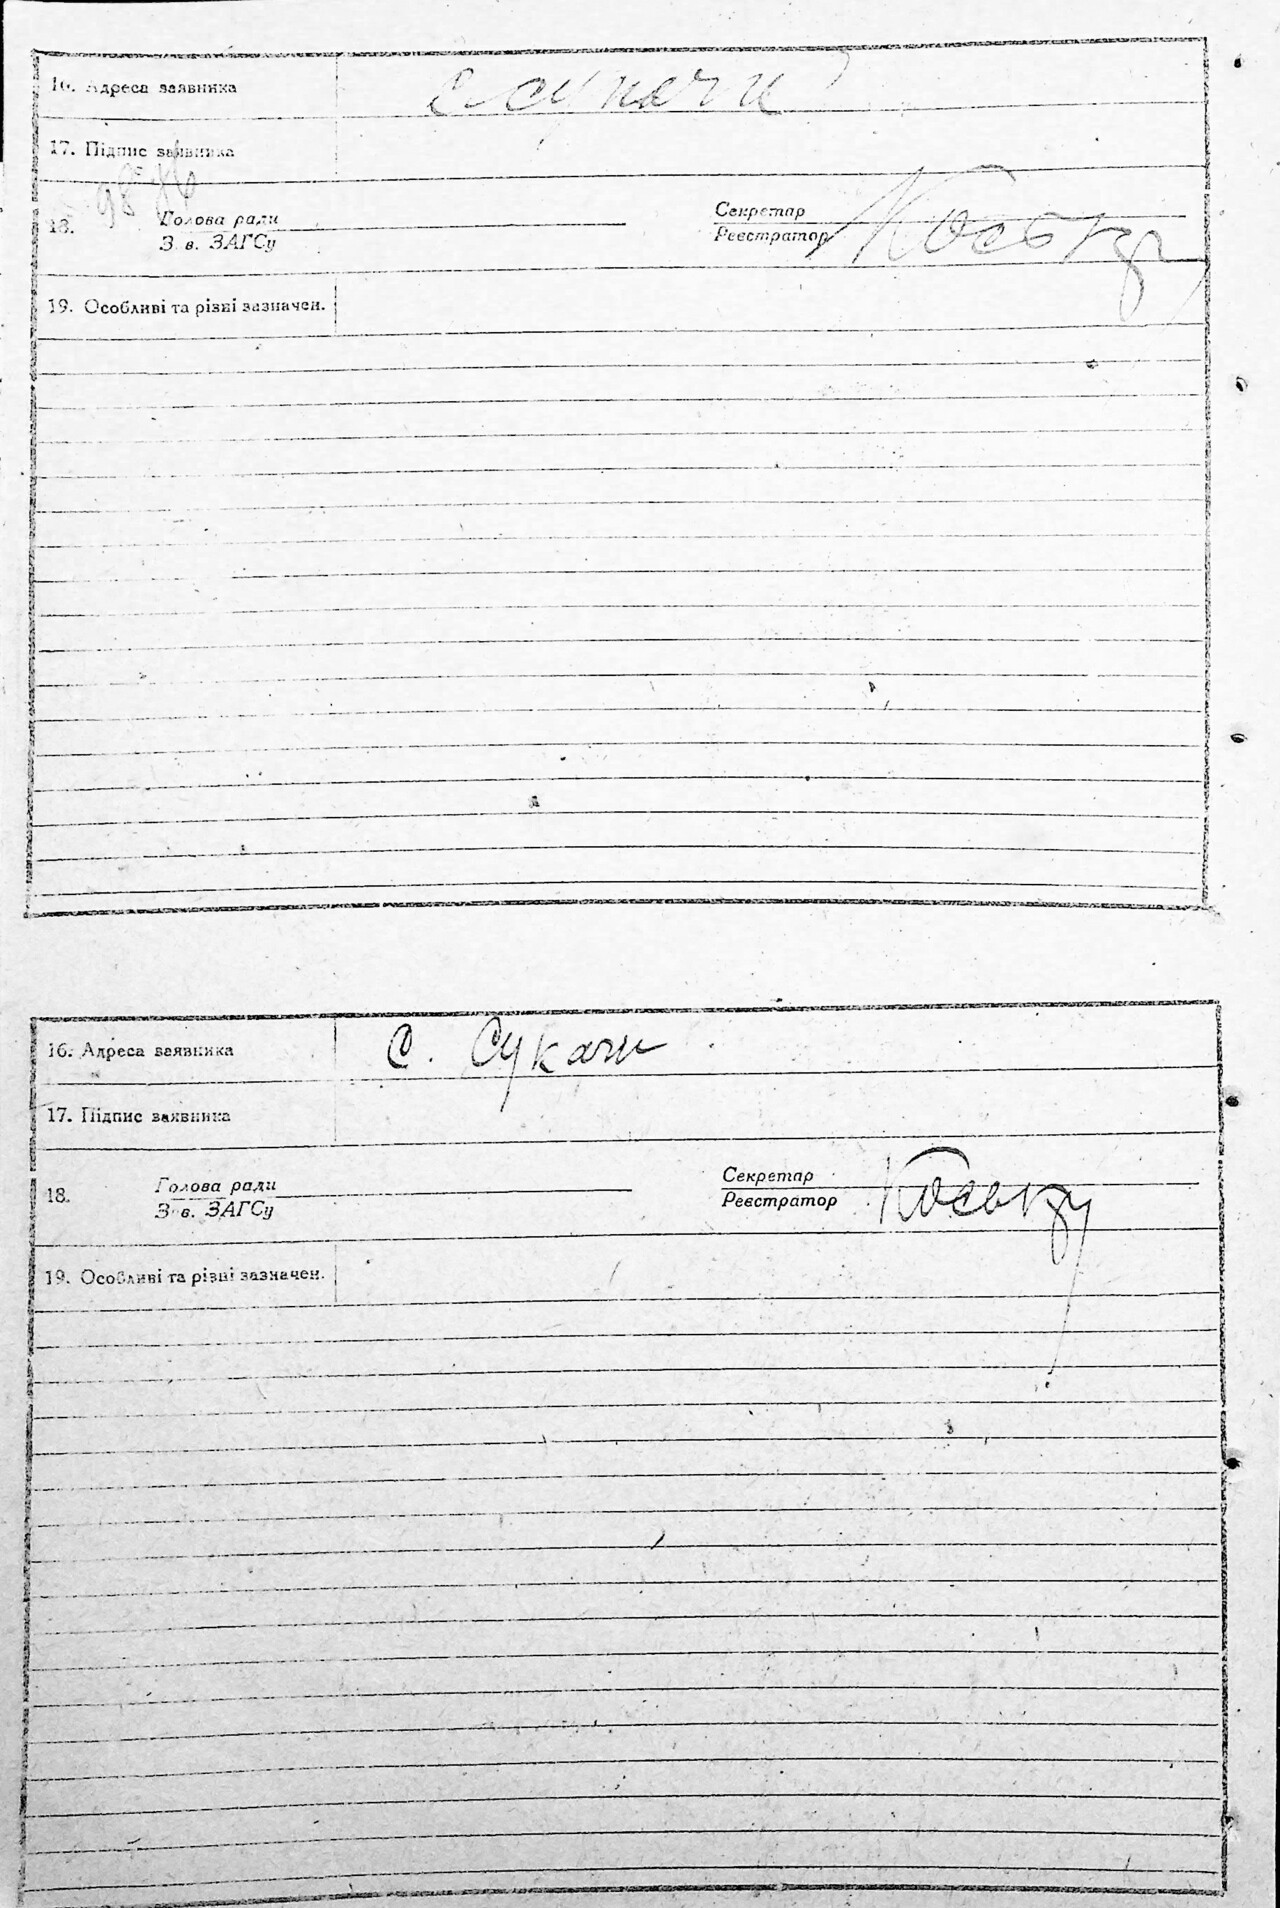 16. Адреса заявника с Сукачи
17. Підпис заявника
18. Голова ради Секретар
З в. ЗАГСу Реєстратор
19. Особливі та різні зазначен.
16. Адреса заявника с. Сукачи
17. Підпис заявника
18. Голова ради Секретар
З в. ЗАГСу Реєстратор
19. Особливі та різні зазначен.